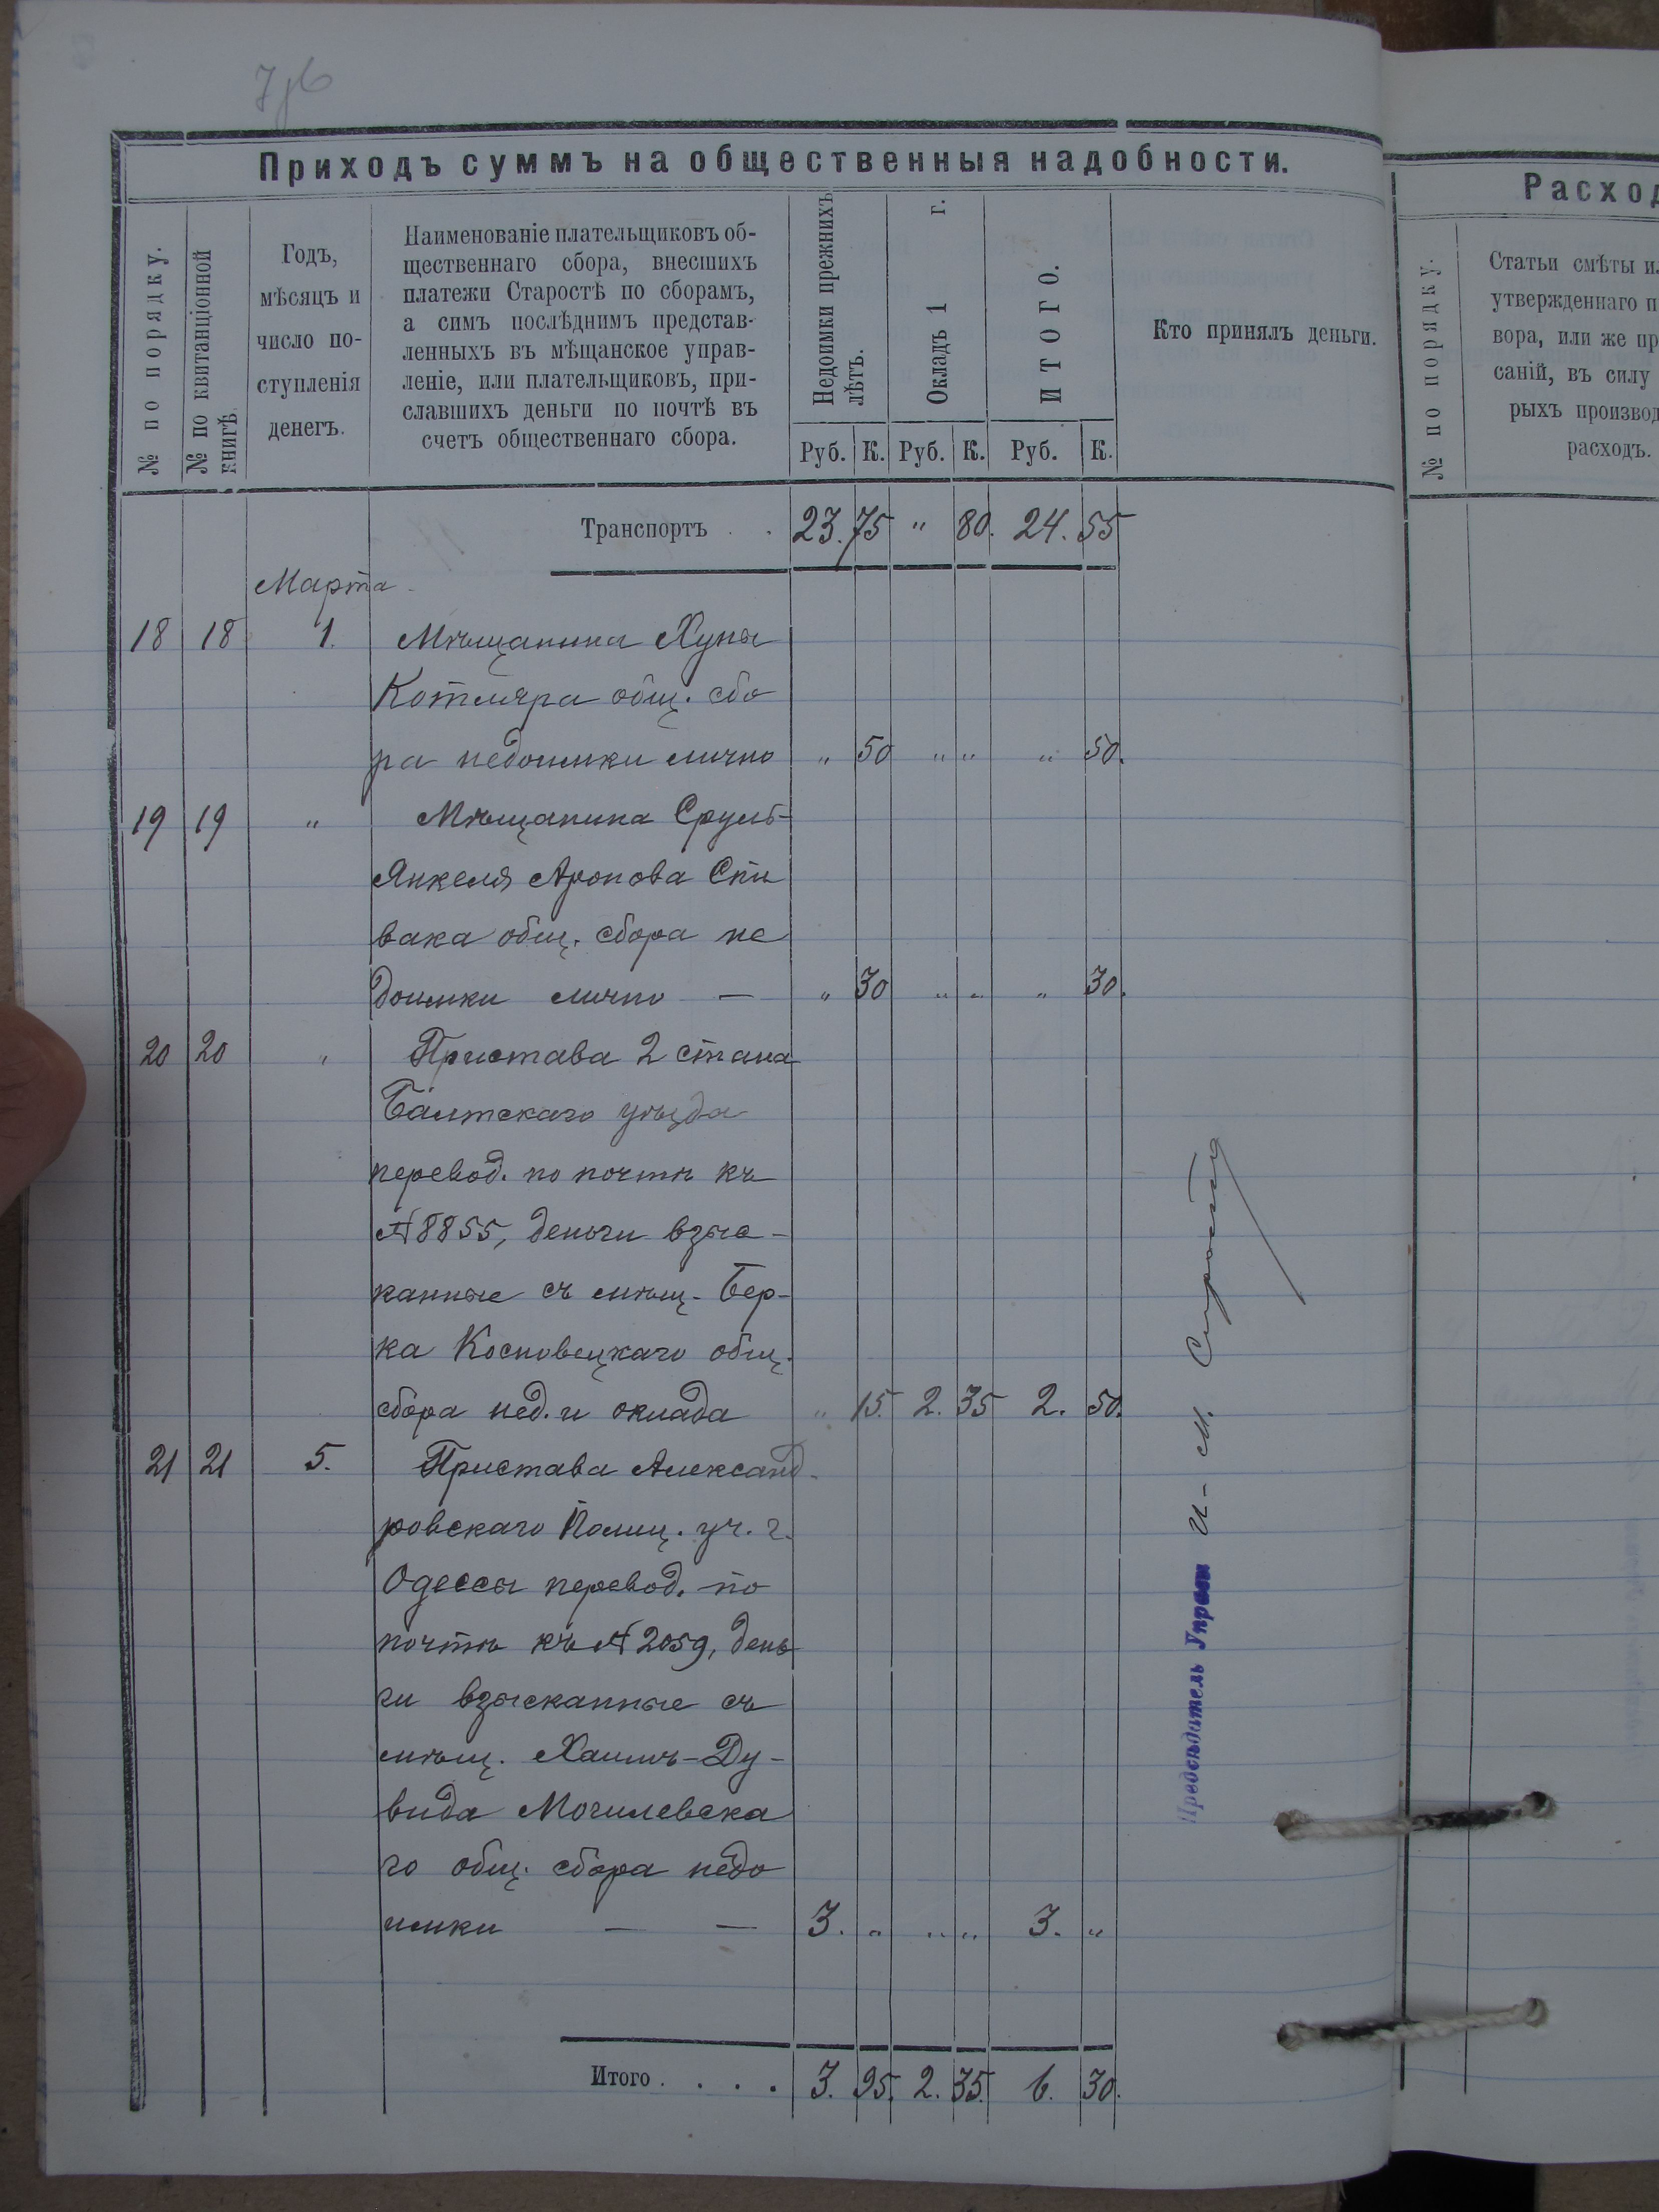 Приходъ суммъ на общественныя надобности.
№ по порядку.
№ по квитанціонной
книгѣ.
Годъ,
мѣсяцъ и
число по-
ступленія
денегъ.
Наименованіе плательщиковъ об-
щественнаго сбора, внесшихъ
платежи Старостѣ по сборамъ,
а симъ послѣднимъ представ-
ленныхъ въ мѣщанское управ-
леніе, или плательщиковъ, при-
славшихъ деньги по почтѣ въ
счетъ общественнаго сбора.
Недоимки прежнихъ
лѣтъ.
Окладъ 1 г.
ИТОГО.
Руб. К. Руб. К. Руб. К.
Кто принялъ деньги.
Транспортъ . . 23. 75 " 80. 24. 55
Марта
18 18 1. Мѣщанина Хуны
Котляра общ. сбо
ра недоимки лично " 50 " " " 50.
19 19 " Мѣщанина Сруль-
Янкеля Аронова Спи
вака общ. сбора не
доимки лично — " 30 " " " 30.
20 20 " Пристава 2 стана
Балтскаго уѣзда
перевод. по почтѣ къ
№ 8855, деньги взыс-
канные съ мѣщ. Бер-
ка Косновецкаго общ.
сбора нед. и оклада " 15. 2. 35 2. 50.
21 21 5. Пристава Александ-
ровскаго Полиц. уч. г.
Одессы перевод. по
почтѣ къ № 2059, день
ги взысканные съ
мѣщ. Хаимъ-Ду-
вида Могилевска
го общ. сбора недо
имки — — 3. " " " 3. "
Итого . . . . 3. 95. 2. 35. 6. 30.
Предсѣдатель Управы И-М.
Расход
№ по порядку.
Статьи смѣты и
утвержденнаго п
вора, или же пр
саній, въ силу
рыхъ производ
расходъ.